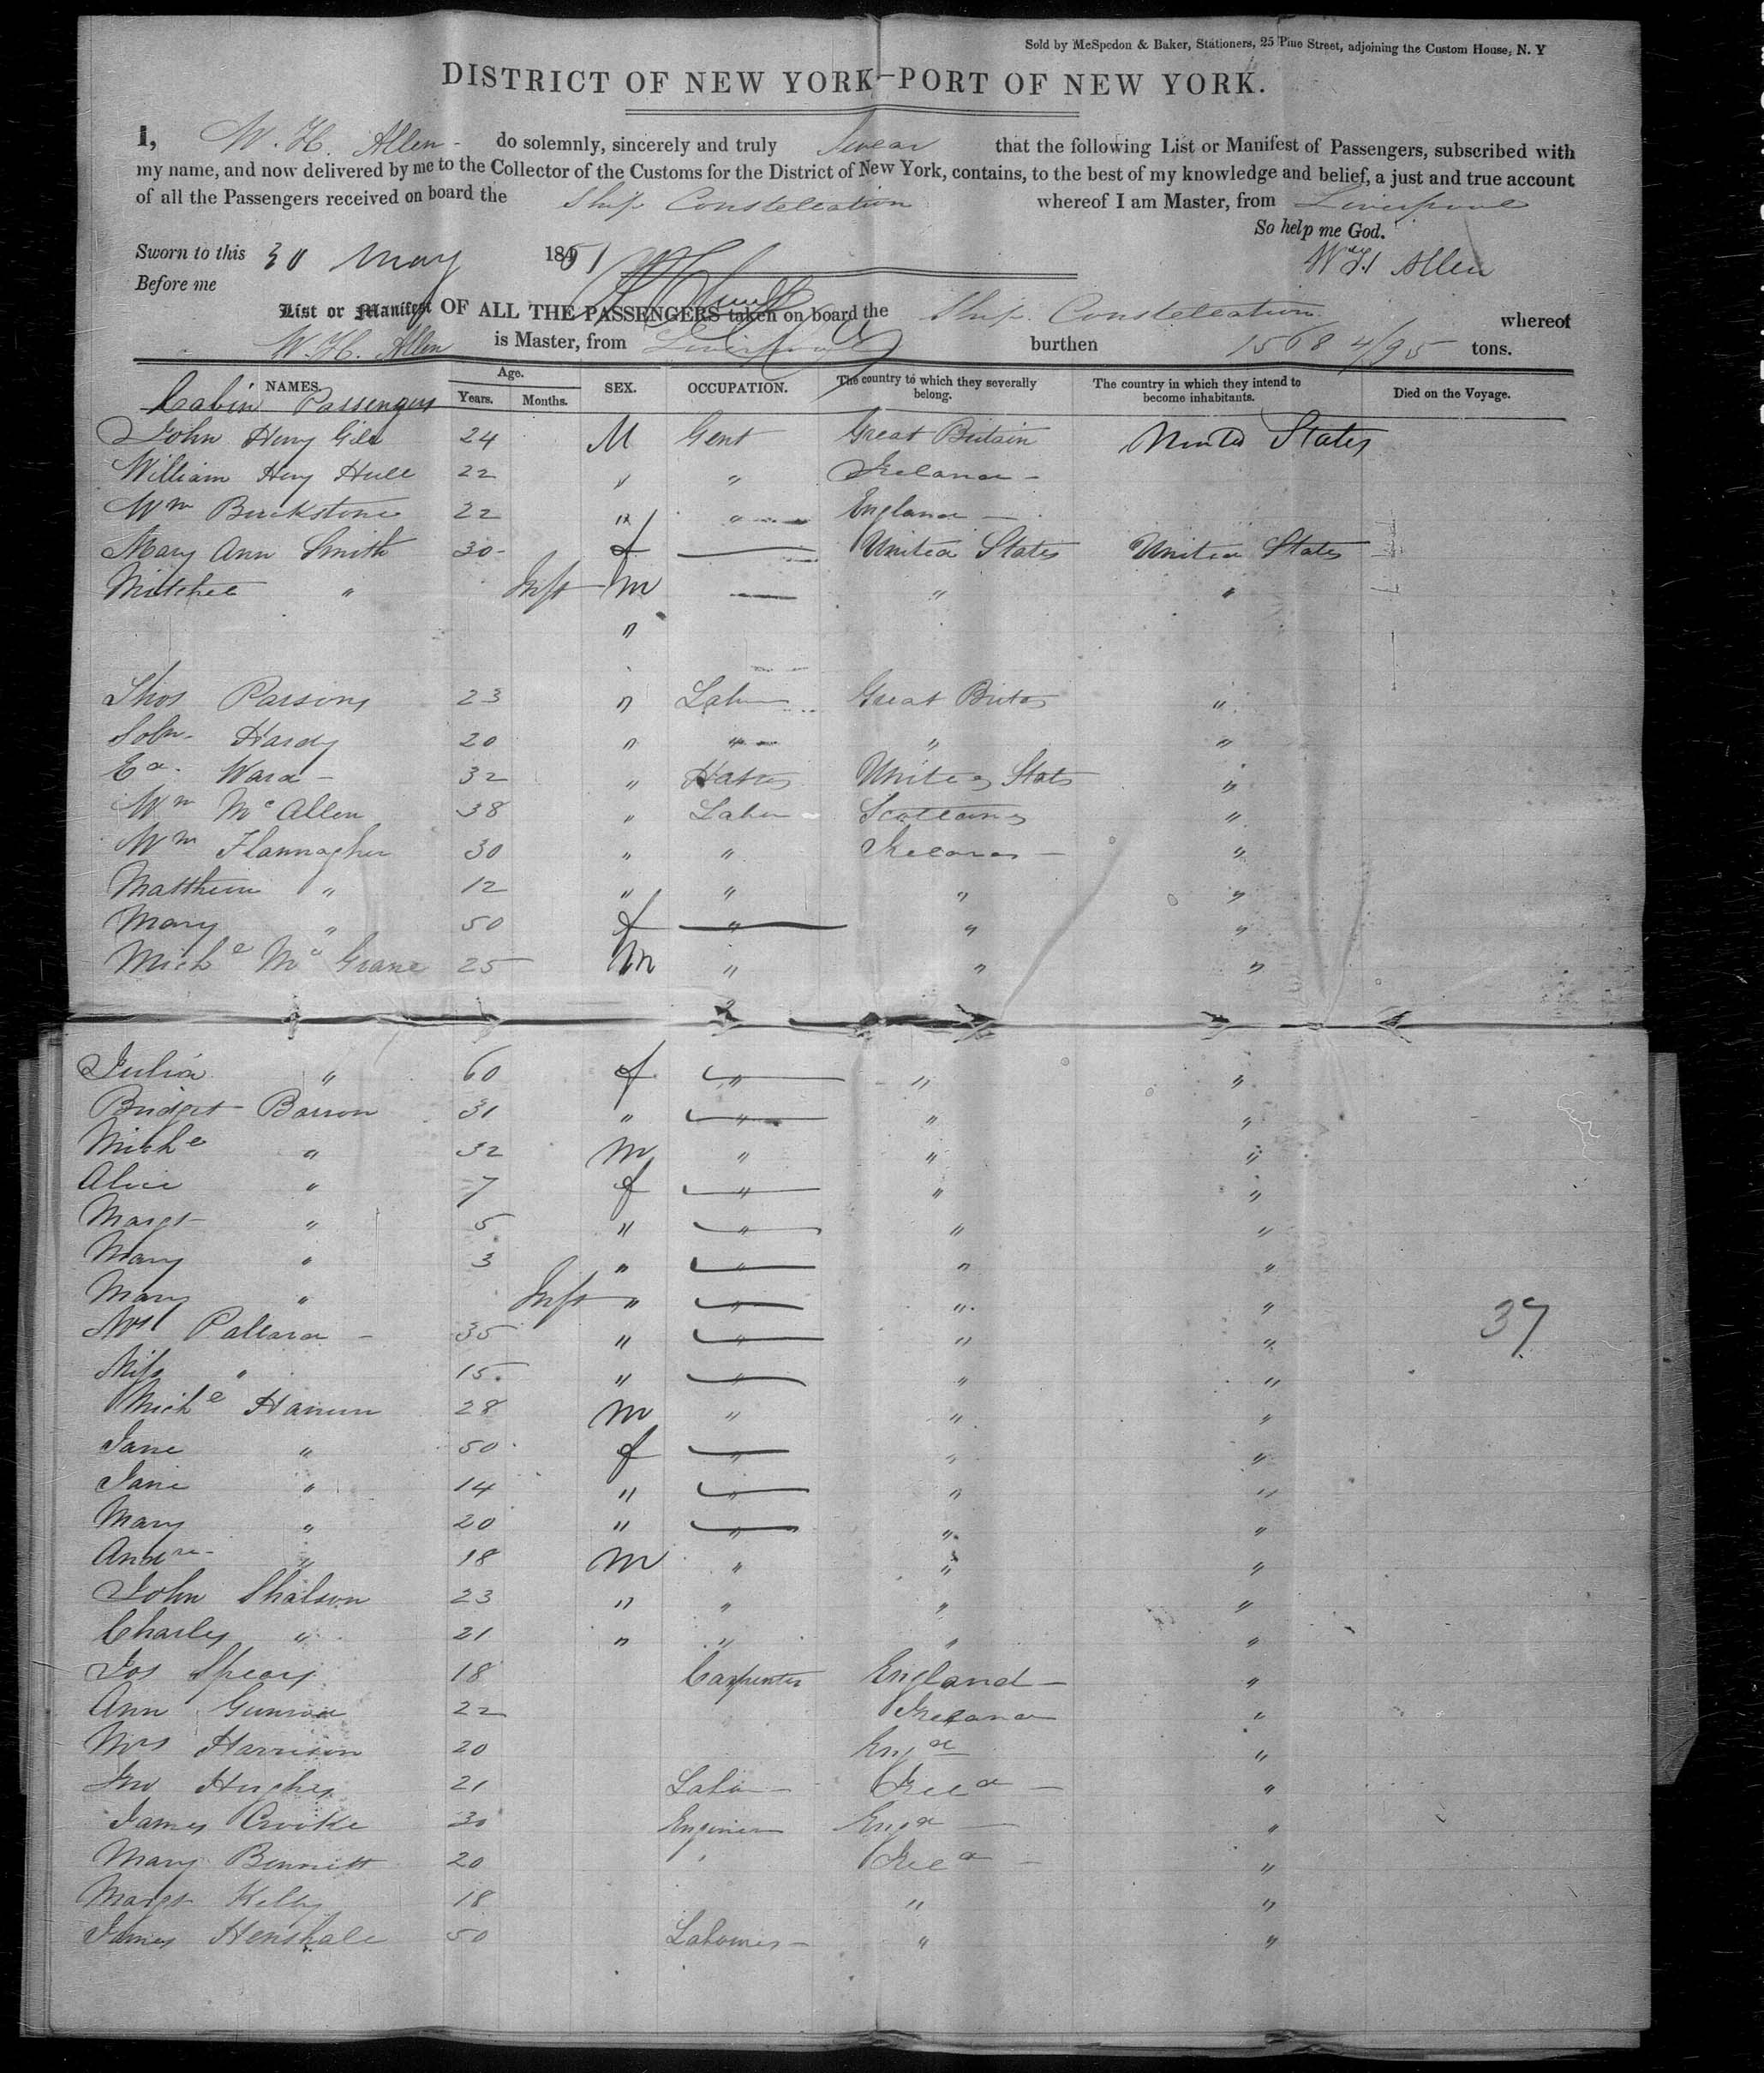 Sold by McSpedon & Baker, Stationers, 25 Pine Street, adjoining the Custom House, N. Y
DISTRICT OF NEW YORK-PORT OF NEW YORK.
I, W. H. Allen - do solemnly, sincerely and truly Swear that the following List or Manifest of Passengers, subscribed with
my name, and now delivered by me to the Collector of the Customs for the District of New York, contains, to the best of my knowledge and belief, a just and true account
of all the Passengers received on board the Ship Constellation whereof I am Master, from Liverpool
So help me God.
Sworn to this 30 May 1851 W H Allen
Before me
List or Manifest OF ALL THE PASSENGERS taken on board the Ship Constellation whereof
W. H. Allen is Master, from Liverpool burthen 1568 4/95 tons.
NAMES. Age. Years. Months. SEX. OCCUPATION. The country to which they severally belong. The country in which they intend to become inhabitants. Died on the Voyage.
Cabin Passengers
John Henry 24 M Gent Great Britain United States
William Heny Hull 22 " " Ireland -
Wm 22 " " England -
Mary Ann Smith 30 - f United States United States
Mitchel " Inft M " "
"
Thos Parsons 23 " Labr Great Brita "
Soln. Hardy 20 " " " "
Ed. Ward - 32 " United Stats "
Wm McAllen 38 " Labr Scotland "
Wm Flannagher 30 " " Ireland - "
Matthew " 12 " " " "
Mary " 50 f " " "
Michl Mc Grane 25 M " " "
Julia " 60 f " " "
Bridget Barron 31 " " " "
Michl " 32 M " " "
Alice " 7 f " " "
Margt " 5 " " " "
Mary " 3 " " " "
Mary " Inft " " " "
Mrs Pallard - 35 " " " " 37
" 15 " " " "
Michl 28 M " " "
Jane " 50 f " " "
Jane " 14 " " " "
Mary " 20 " " " "
Andrw " 18 M " " "
John Shalson 23 " " " "
Charles " 21 " " " "
Jos Spears 18 Carpenter England - "
Ann 22 Ireland "
Mrs Harrison 20 Engd "
Jno Hughes 21 Labr - Ireld - "
James Crooke 30 Engineer Engd - "
Mary Bennett 20 " Ireld - "
Margt Kelly 18 " "
James Henshall 50 Labourer - " "